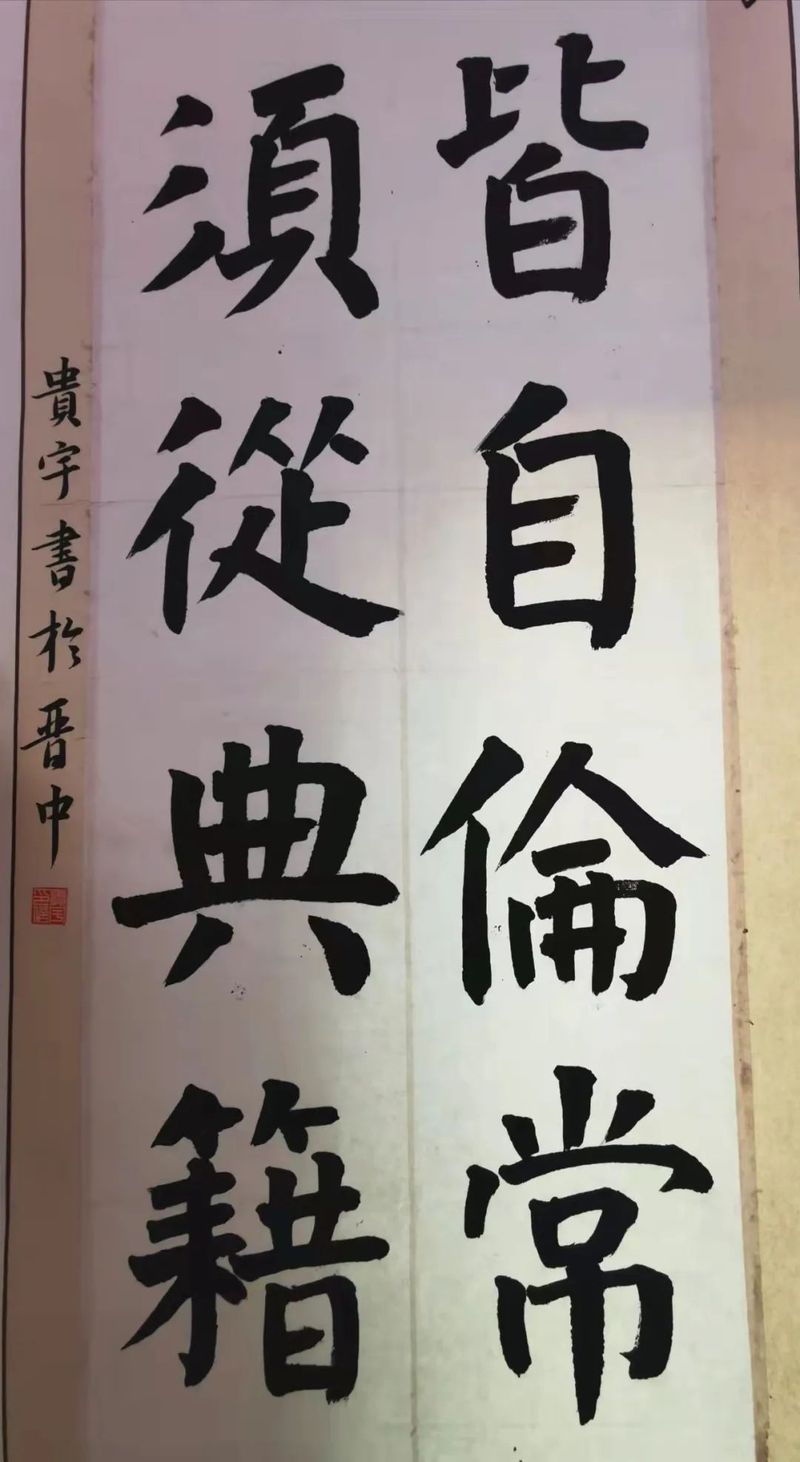 皆自倫常
須從典籍
貴宇書於晋中